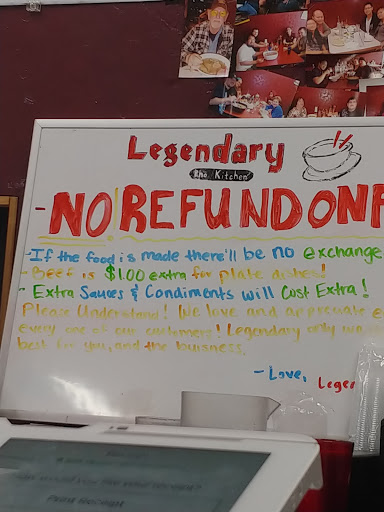 Legendary
Pho Kitchen
- NO REFUND ON
- If the food is made there'll be no exchange
- Beef is $1.00 extra for plate dishes!
- Extra Sauces & Condiments will Cost Extra!
Please Understand! We love and appreciate
every one of our customers! Legendary only
best for you, and the buisness.
- Love, Legen
Print Receipt